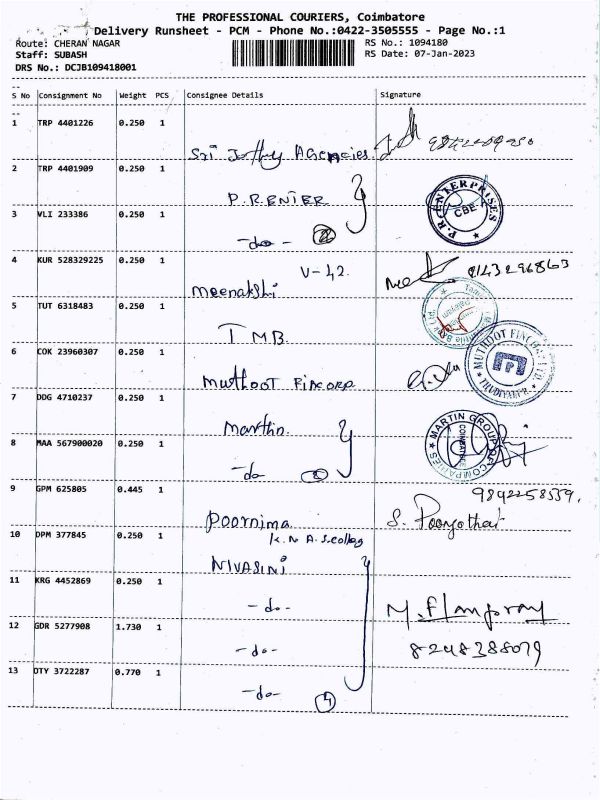 THE PROFESSIONAL COURIERS, Coimbatore
Delivery Runsheet - PCM - Phone No.:0422-3505555 - Page No.:1
Route: CHERAN NAGAR RS No.: 1094180
Staff: SUBASH RS Date: 07-Jan-2023
DRS No.: DCJB109418001
S No Consignment No Weight PCS Consignee Details Signature
1 TRP 4401226 0.250 1
Sri Jothy Agencies
2 TRP 4401909 0.250 1
P.R.ENTER
P.R.ENTERPRISES CBE
3 VLI 233386 0.250 1
-do- 2
4 KUR 528329225 0.250 1
V-42
Meenakshi
5 TUT 6318483 0.250 1
TMB
6 COK 23960307 0.250 1
Muthoot Fincorp
MUTHOOT FINCORP LTD
7 DDG 4710237 0.250 1
Marthin
MARTIN GROUP OF COMPANIES COIMBATORE
8 MAA 567900020 0.250 1
-do- 2
9 GPM 625805 0.445 1
9842258539
Poornima S. Poongothai
10 DPM 377845 0.250 1
NIVASINI
11 KRG 4452869 0.250 1
-do-
12 GDR 5277908 1.730 1
-do- 8248388079
13 DTY 3722287 0.770 1
-do- 4